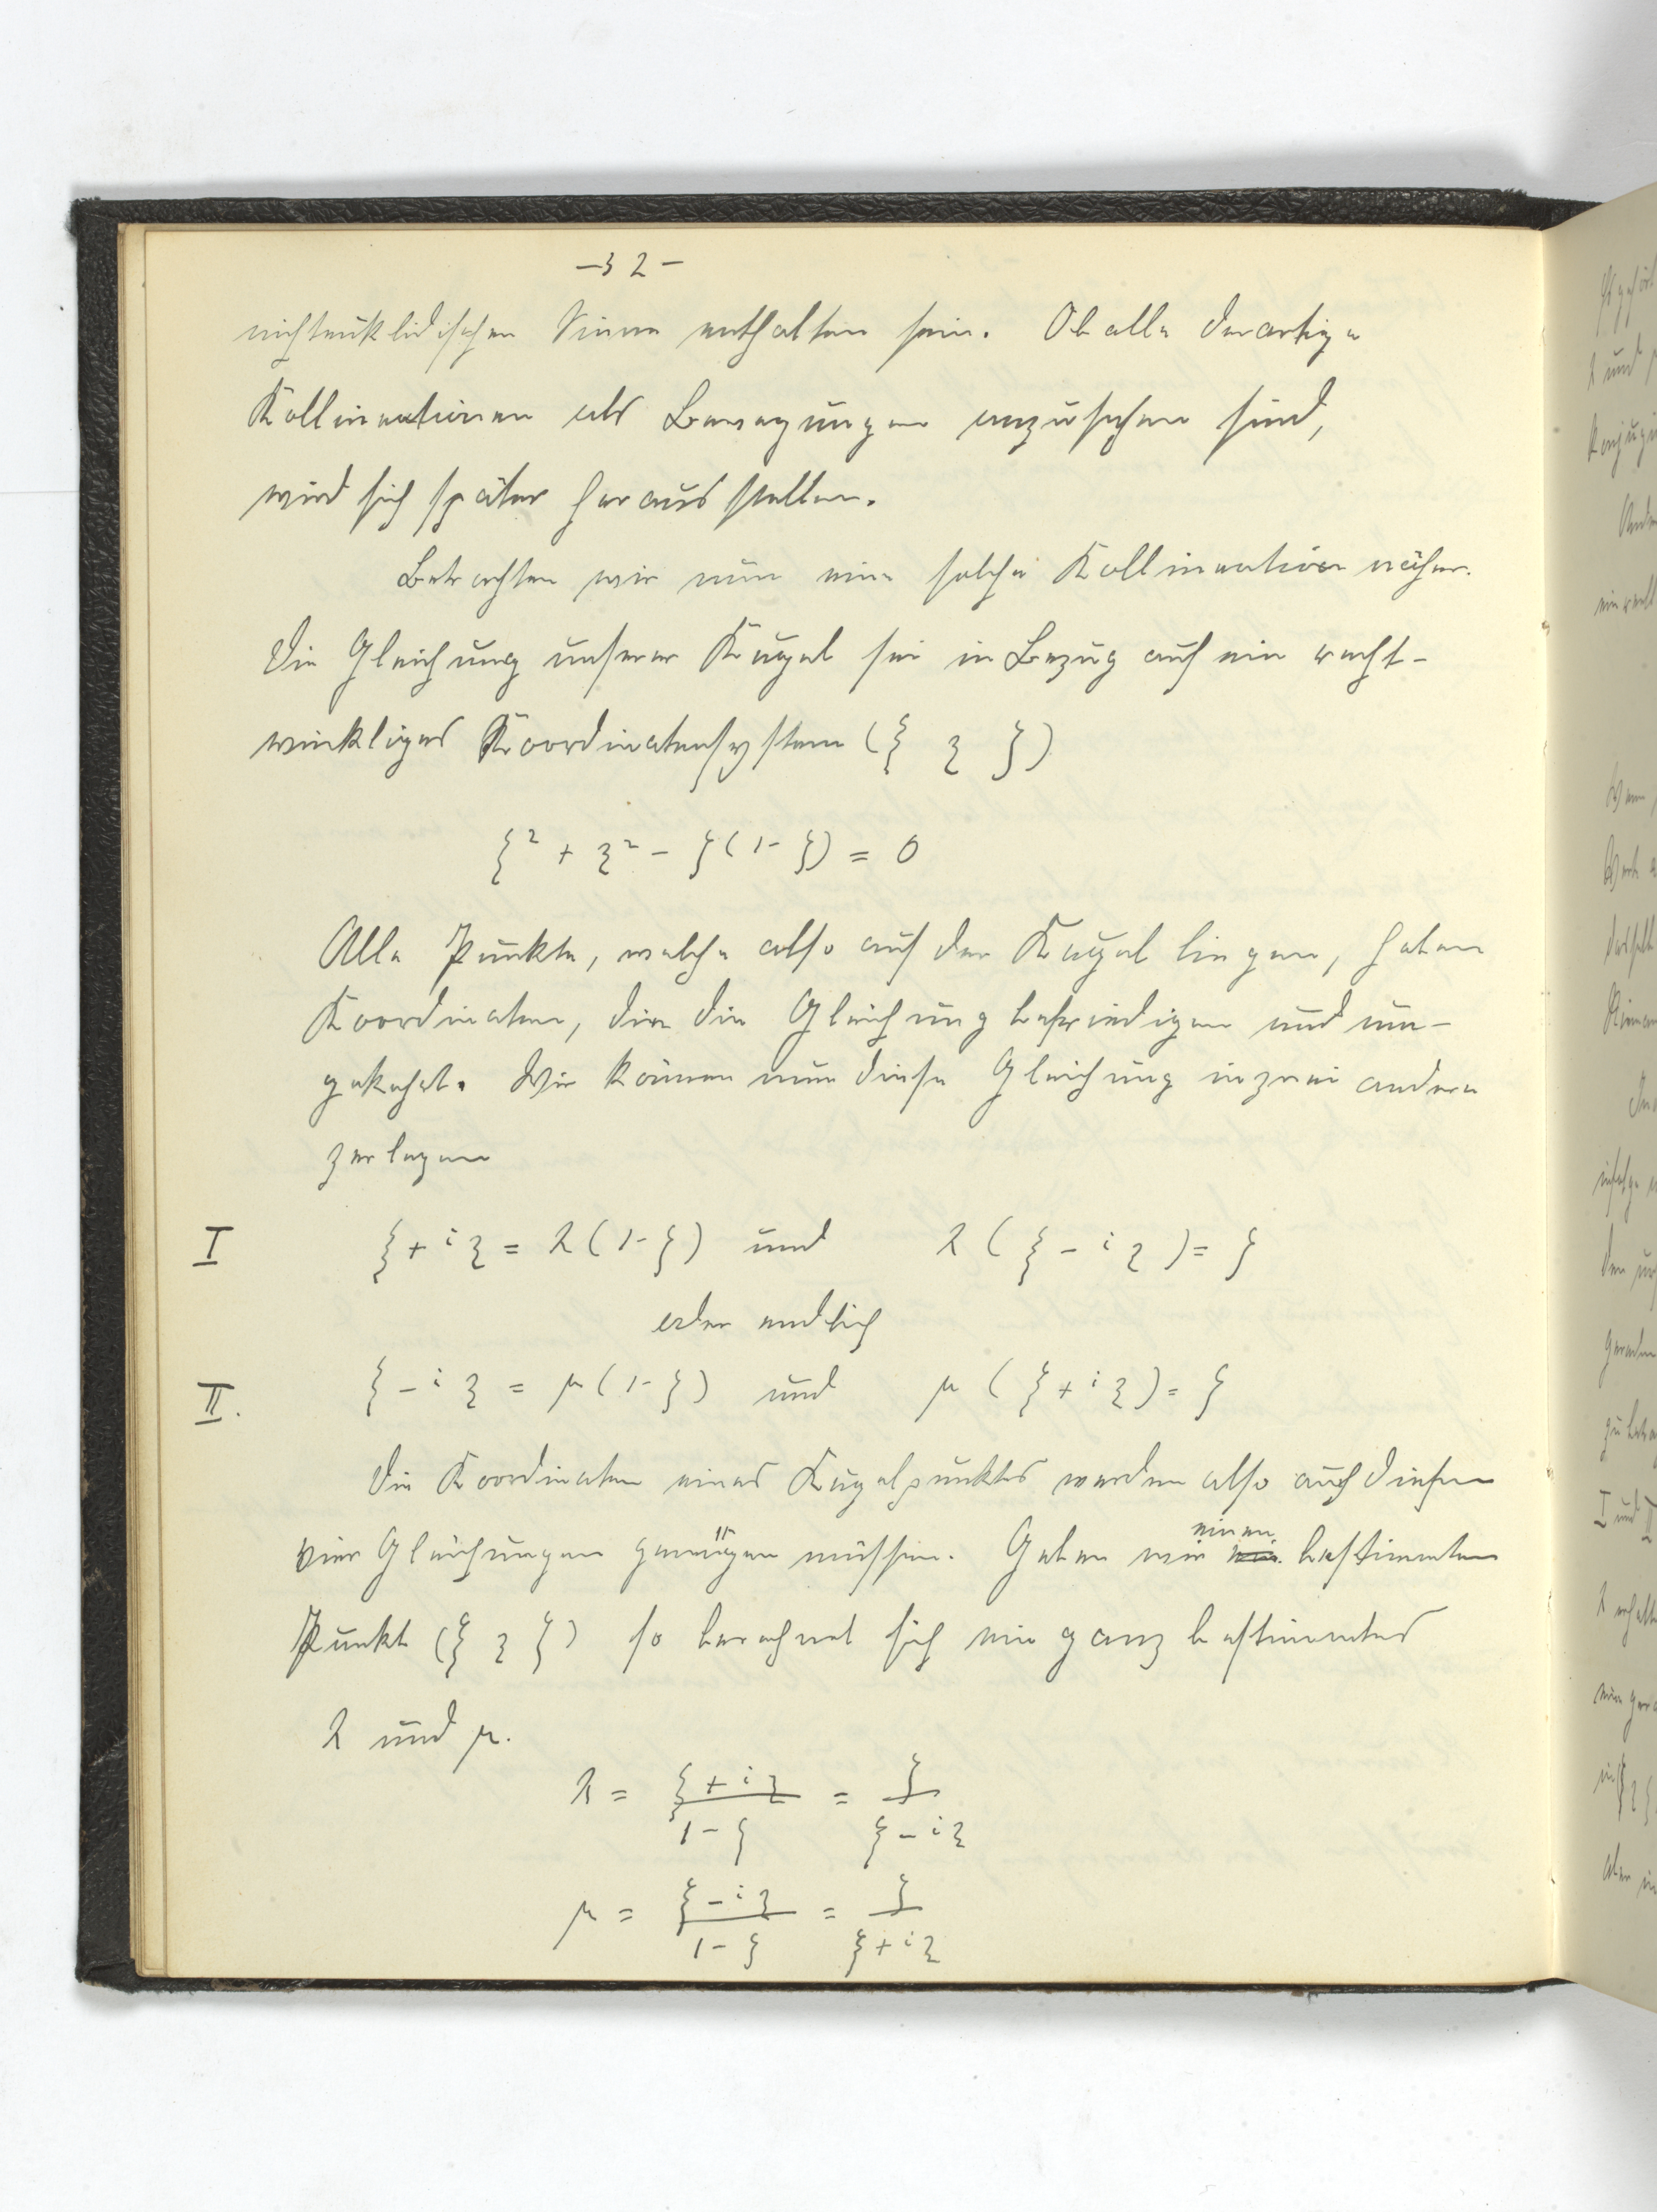 - 32 -
nichteuklidischen Sinne enthalten sein. Ob alle derartige
Kollineationen als Bewegungen anzusehen sind,
wird sich später herausstellen.
Betrachten wir nun eine solche Kollineation näher.
Die Gleichung unserer Kugel sei in Bezug auf ein recht-
winkliges Koordinatensystem (ξ η ζ)
ξ² + η² - ζ(1-ζ) = 0
Alle Punkte, welche also auf der Kugel liegen, haben
Koordinaten, die die Gleichung befriedigen und um-
gekehrt. Wir können nun diese Gleichung in zwei andere
zerlegen
I ξ + iη = λ(1-ζ) und λ(ξ - iη) = ζ
oder endlich
II. ξ - iη = μ(1-ζ) und μ(ξ + iη) = ζ
Die Koordinaten eines Kugelpunktes werden also auch diesen
vier Gleichungen genügen müssen. Geben wir einen bestimmten
Punkt (ξ η ζ) so berechnet sich ein ganz bestimmtes
λ und μ.
λ = (ξ + iη)/(1-ζ) = ζ/(ξ - iη)
μ = (ξ - iη)/(1-ζ) = ζ/(ξ + iη)